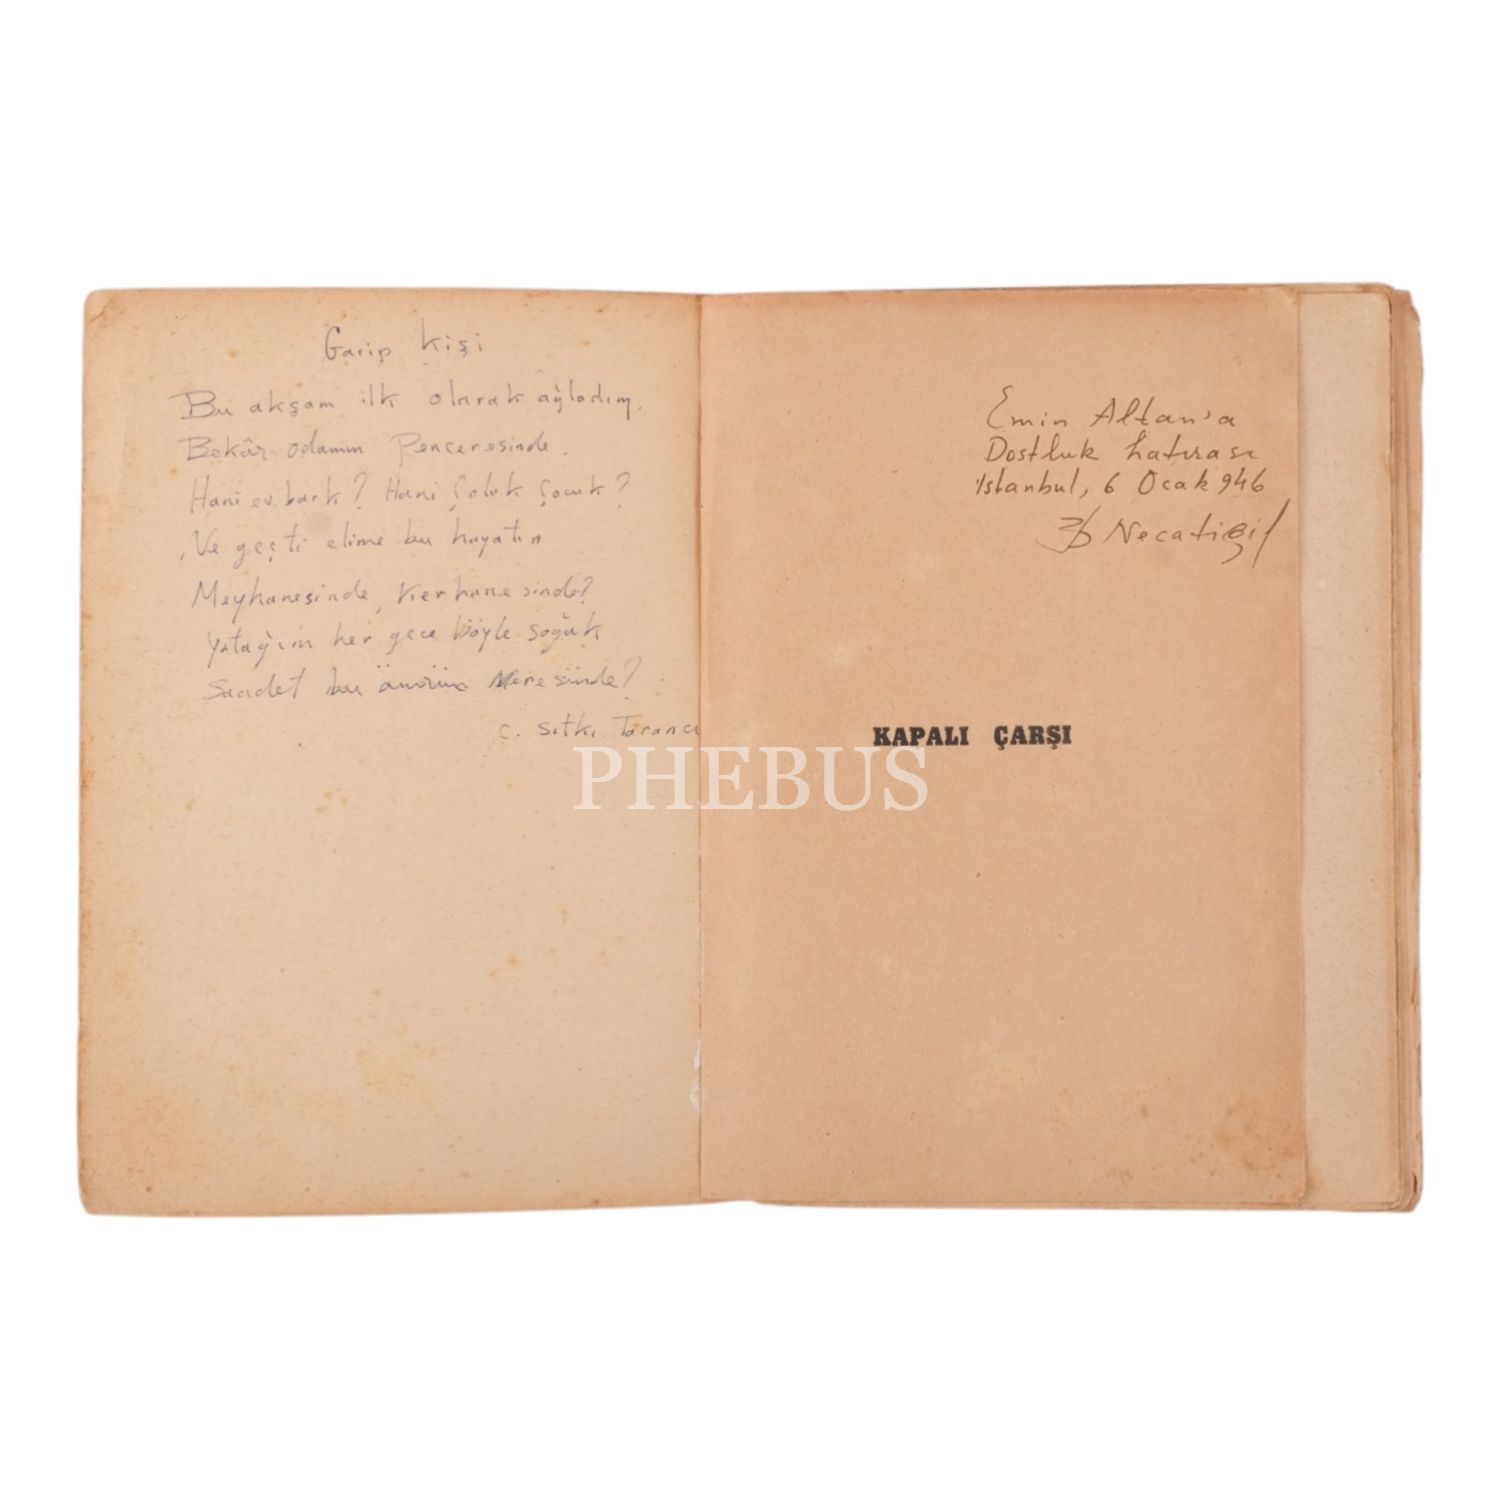 Garip Kişi
Bu akşam ilk olarak ağladım,
Bekâr odamın Penceresinde.
Hani ev bark? Hani Çoluk Çocuk?
Ve geçti elime bu hayatın
Meyhanesinde, Kerhanesinde?
Yatağım her gece böyle soğuk
Saadet bu ömrün Neresinde?
C. Sıtkı Tarancı
Emin Altan'a
Dostluk hatırası
İstanbul, 6 Ocak 946
Necatigil
KAPALI ÇARŞI
PHEBUS